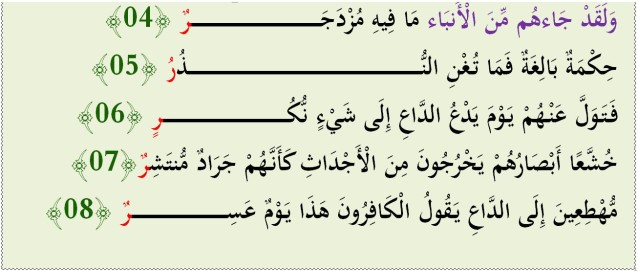 وَلَقَدْ جَاءهُم مِّنَ الْأَنبَاء مَا فِيهِ مُزْدَجَـــــــــــرٌ ﴿04﴾
حِكْمَةٌ بَالِغَةٌ فَمَا تُغْنِ النُّـــــــــــــــــذُرُ ﴿05﴾
فَتَوَلَّ عَنْهُمْ يَوْمَ يَدْعُ الدَّاعِ إِلَى شَيْءٍ نُّكُـــــــــــرٍ ﴿06﴾
خُشَّعًا أَبْصَارُهُمْ يَخْرُجُونَ مِنَ الْأَجْدَاثِ كَأَنَّهُمْ جَرَادٌ مُّنتَشِرٌ ﴿07﴾
مُّهْطِعِينَ إِلَى الدَّاعِ يَقُولُ الْكَافِرُونَ هَذَا يَوْمٌ عَسِـــــــــرٌ ﴿08﴾